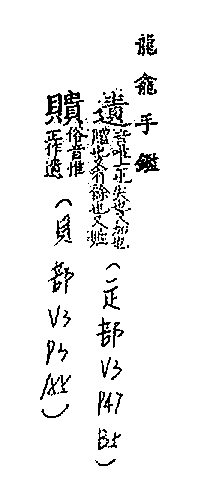 龍龕手鑑
遺以唯反失也又加也
贈也又有餘也又墟
(辵部V3
P47
B5)
䝿俗音惟
正作遺
(貝部V3
P3
A5)